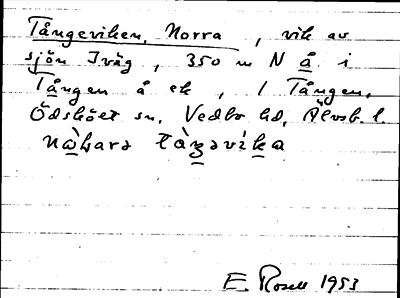 Tångeviken, Norra, vik av
sjön Iväg, 350 m N å i
Tången å ek, 1 Tången,
Ödskölt sn, Vedbo hd, Älvsb. l.
nɷ̀ƕarə tàŋəvika
E. Rosell 1953